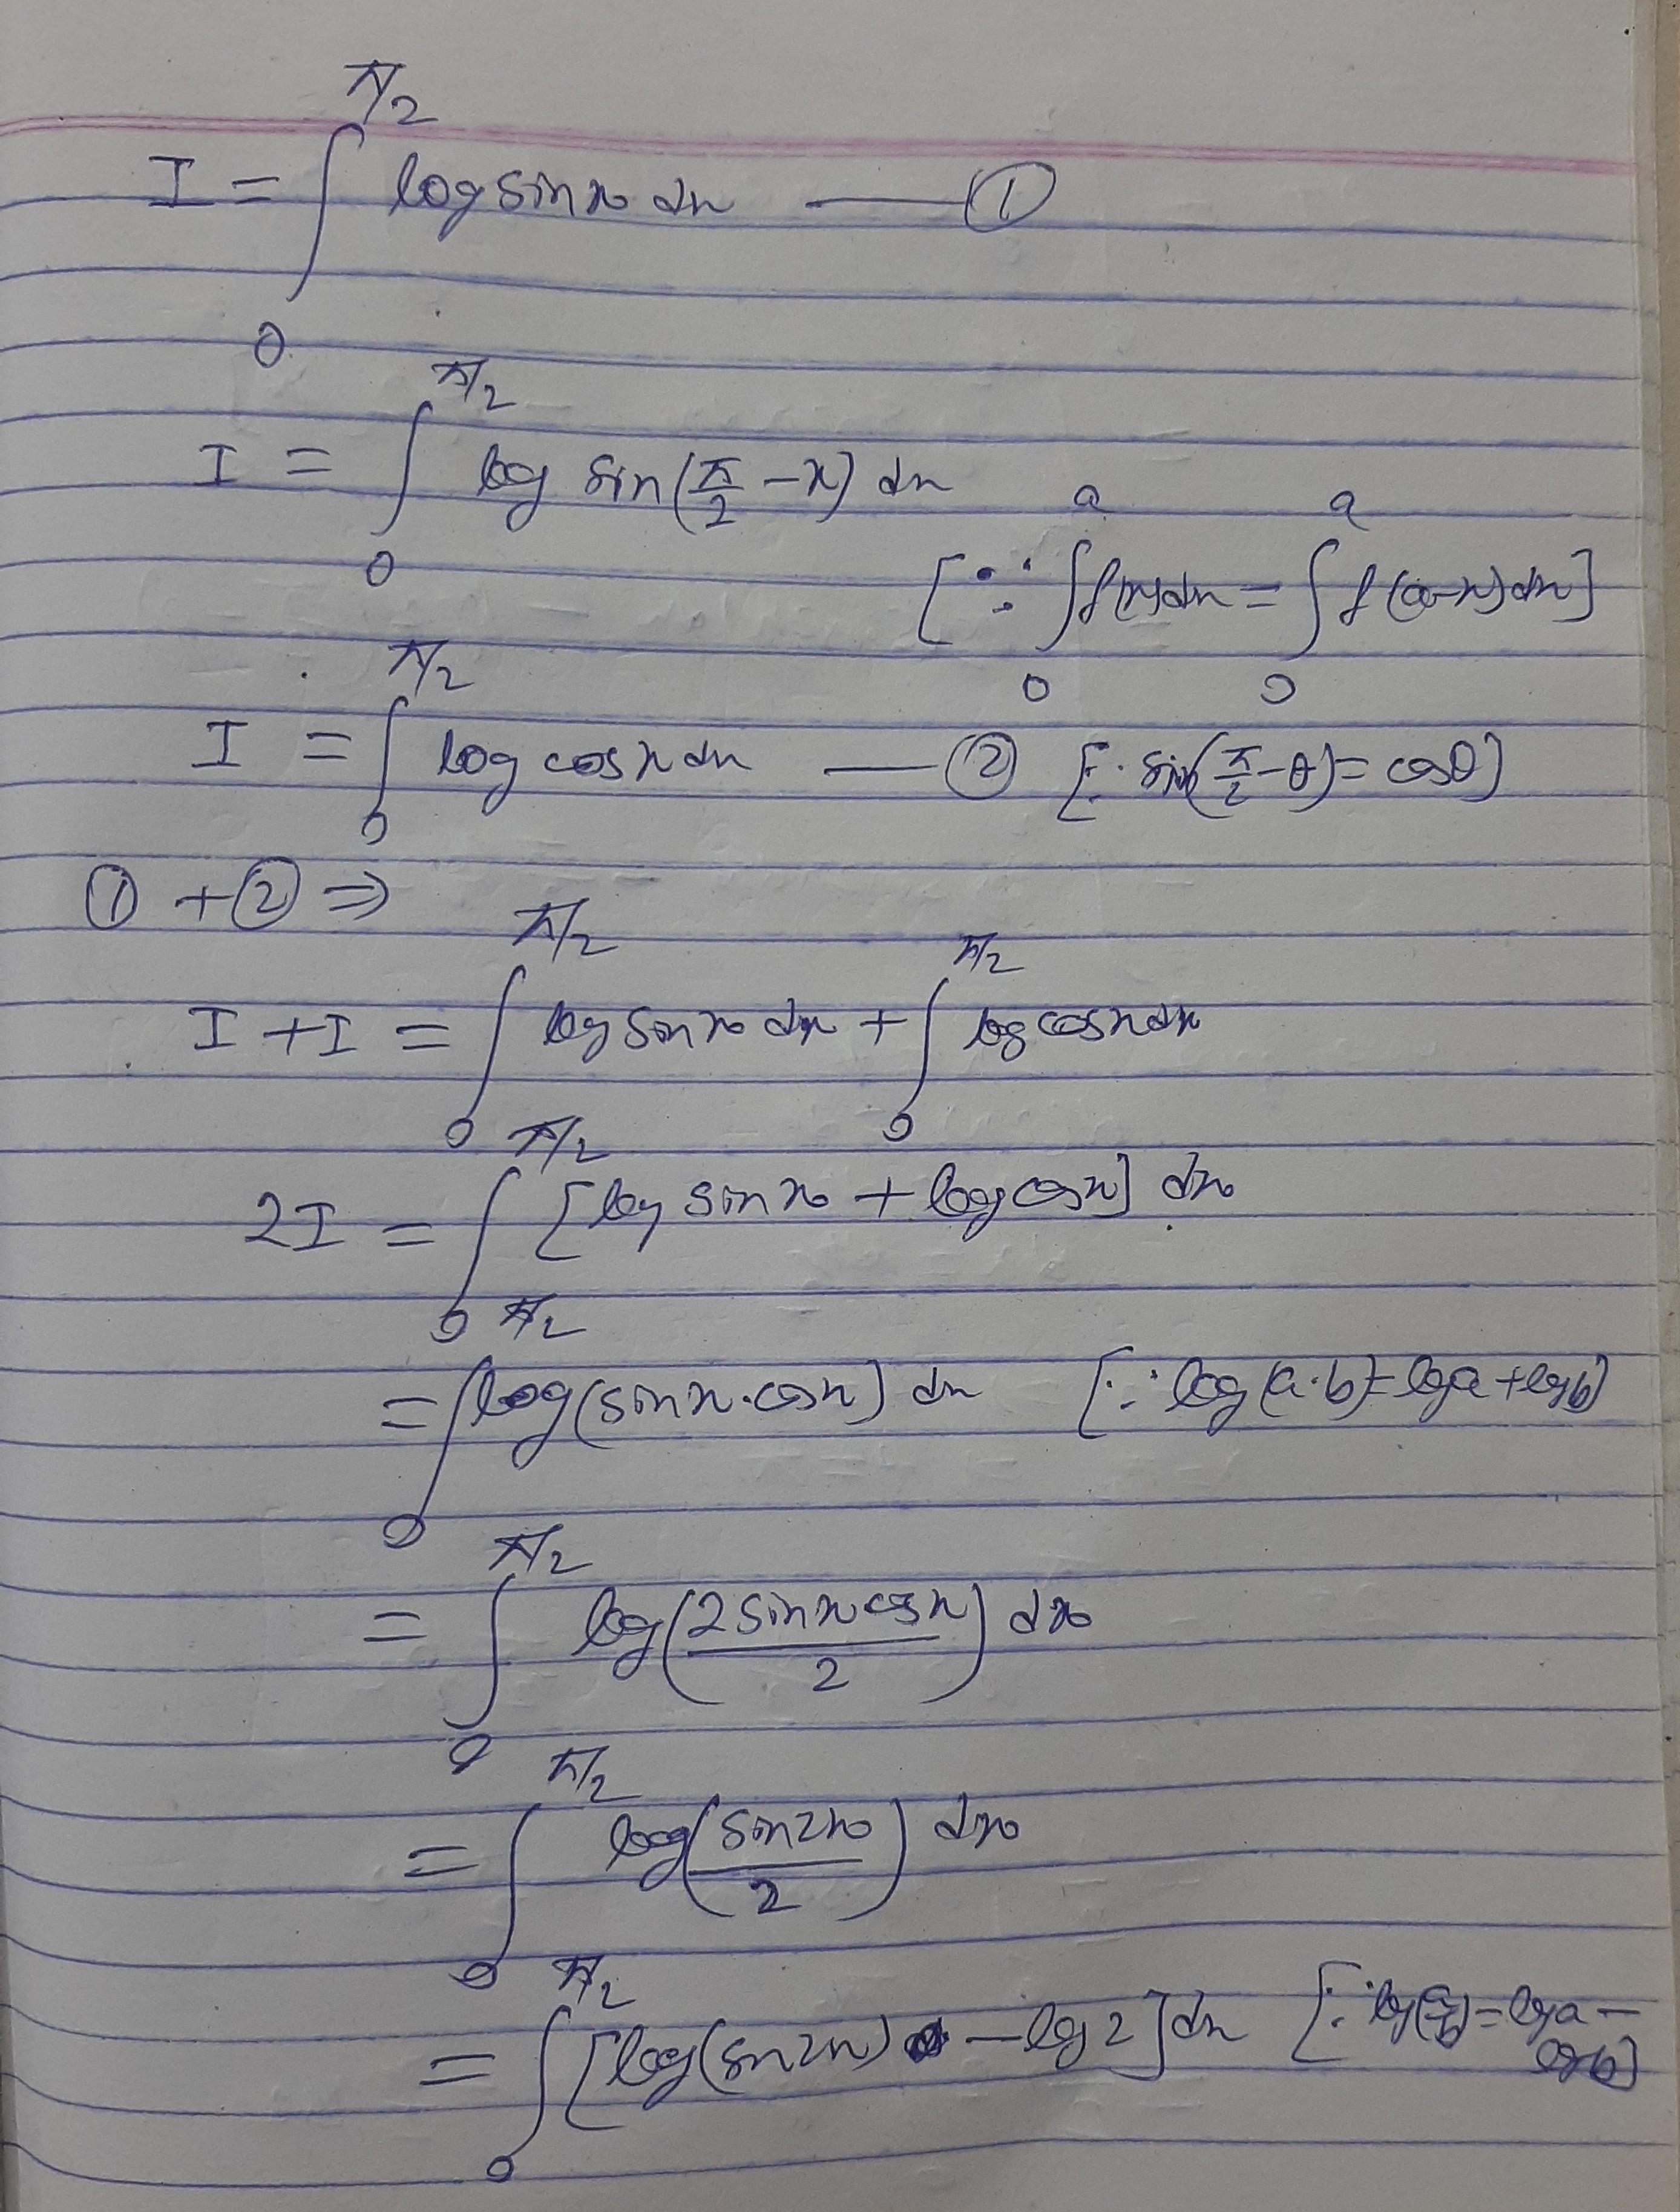 I = ∫₀^{π/2} log sin x dx — ①
I = ∫₀^{π/2} log sin(π/2 − x) dx
[∵ ∫₀^a f(x)dx = ∫₀^a f(a−x)dx]
I = ∫₀^{π/2} log cos x dx — ② [∵ sin(π/2 − θ) = cosθ]
① + ② ⇒
I + I = ∫₀^{π/2} log sin x dx + ∫₀^{π/2} log cos x dx
2I = ∫₀^{π/2} [log sin x + log cos x] dx
= ∫₀^{π/2} log(sin x · cos x) dx [∵ log(a·b) = log a + log b]
= ∫₀^{π/2} log(2 sin x cos x / 2) dx
= ∫₀^{π/2} log(sin 2x / 2) dx
= ∫₀^{π/2} [log(sin 2x) − log 2] dx [∵ log(a/b) = log a −
log b]